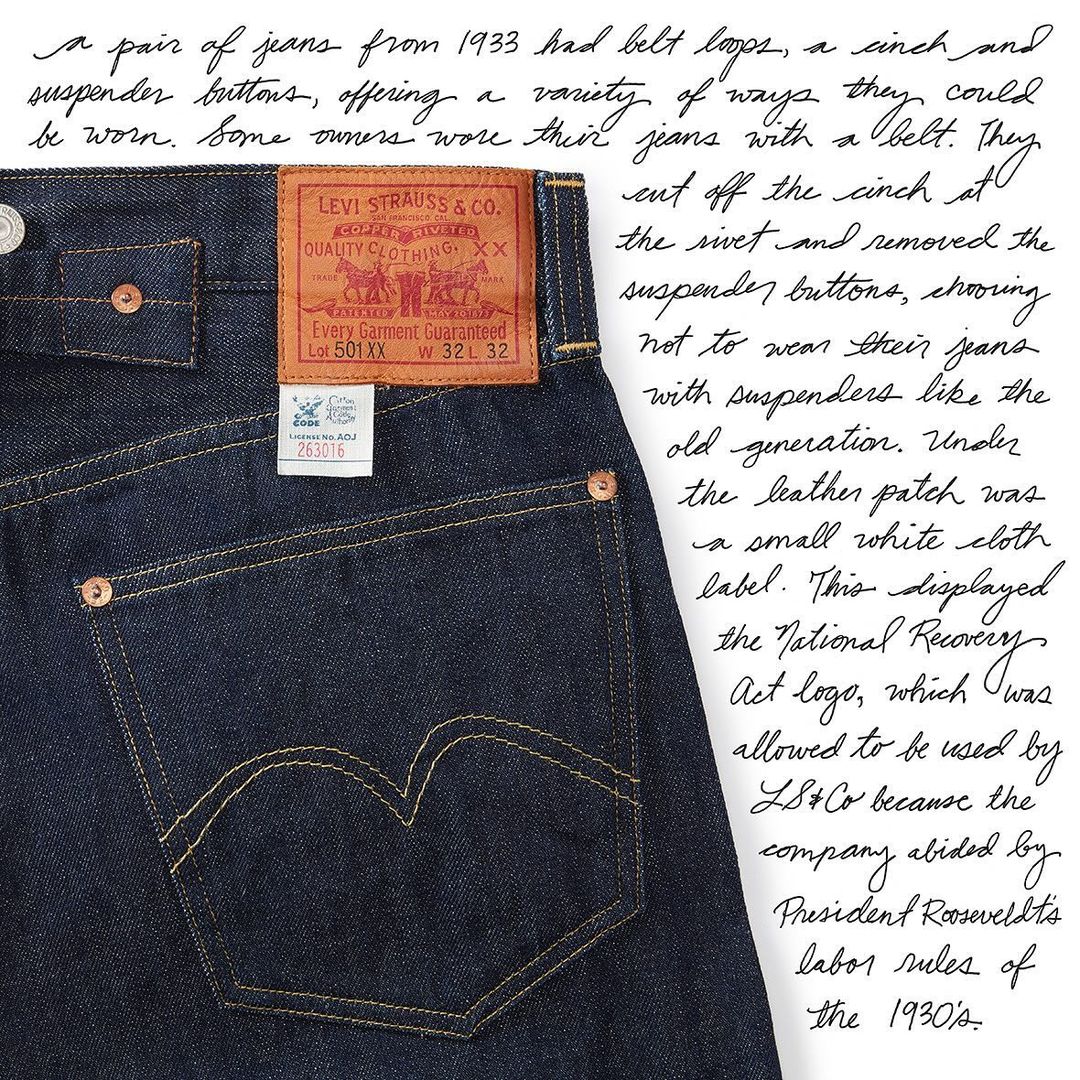 a pair of jeans from 1933 had belt loops, a cinch and
suspender buttons, offering a variety of ways they could
be worn. Some owners wore their jeans with a belt. They
cut off the cinch at
the rivet and removed the
suspender buttons, choosing
not to wear their jeans
with suspenders like the
old generation. Under
the leather patch was
a small white cloth
label. This displayed
the National Recovery
Act logo, which was
allowed to be used by
LS&Co because the
company abided by
President Roosevelt's
labor rules of
the 1930's.
LEVI STRAUSS & CO.
SAN FRANCISCO, CAL.
COPPER RIVETED
QUALITY CLOTHING. XX
TRADE MARK
PATENTED MAY 20 1873
Every Garment Guaranteed
Lot 501XX W 32 L 32
Cotton
Garment
Code
Authority
CODE
LICENSE NO. AOJ
263016